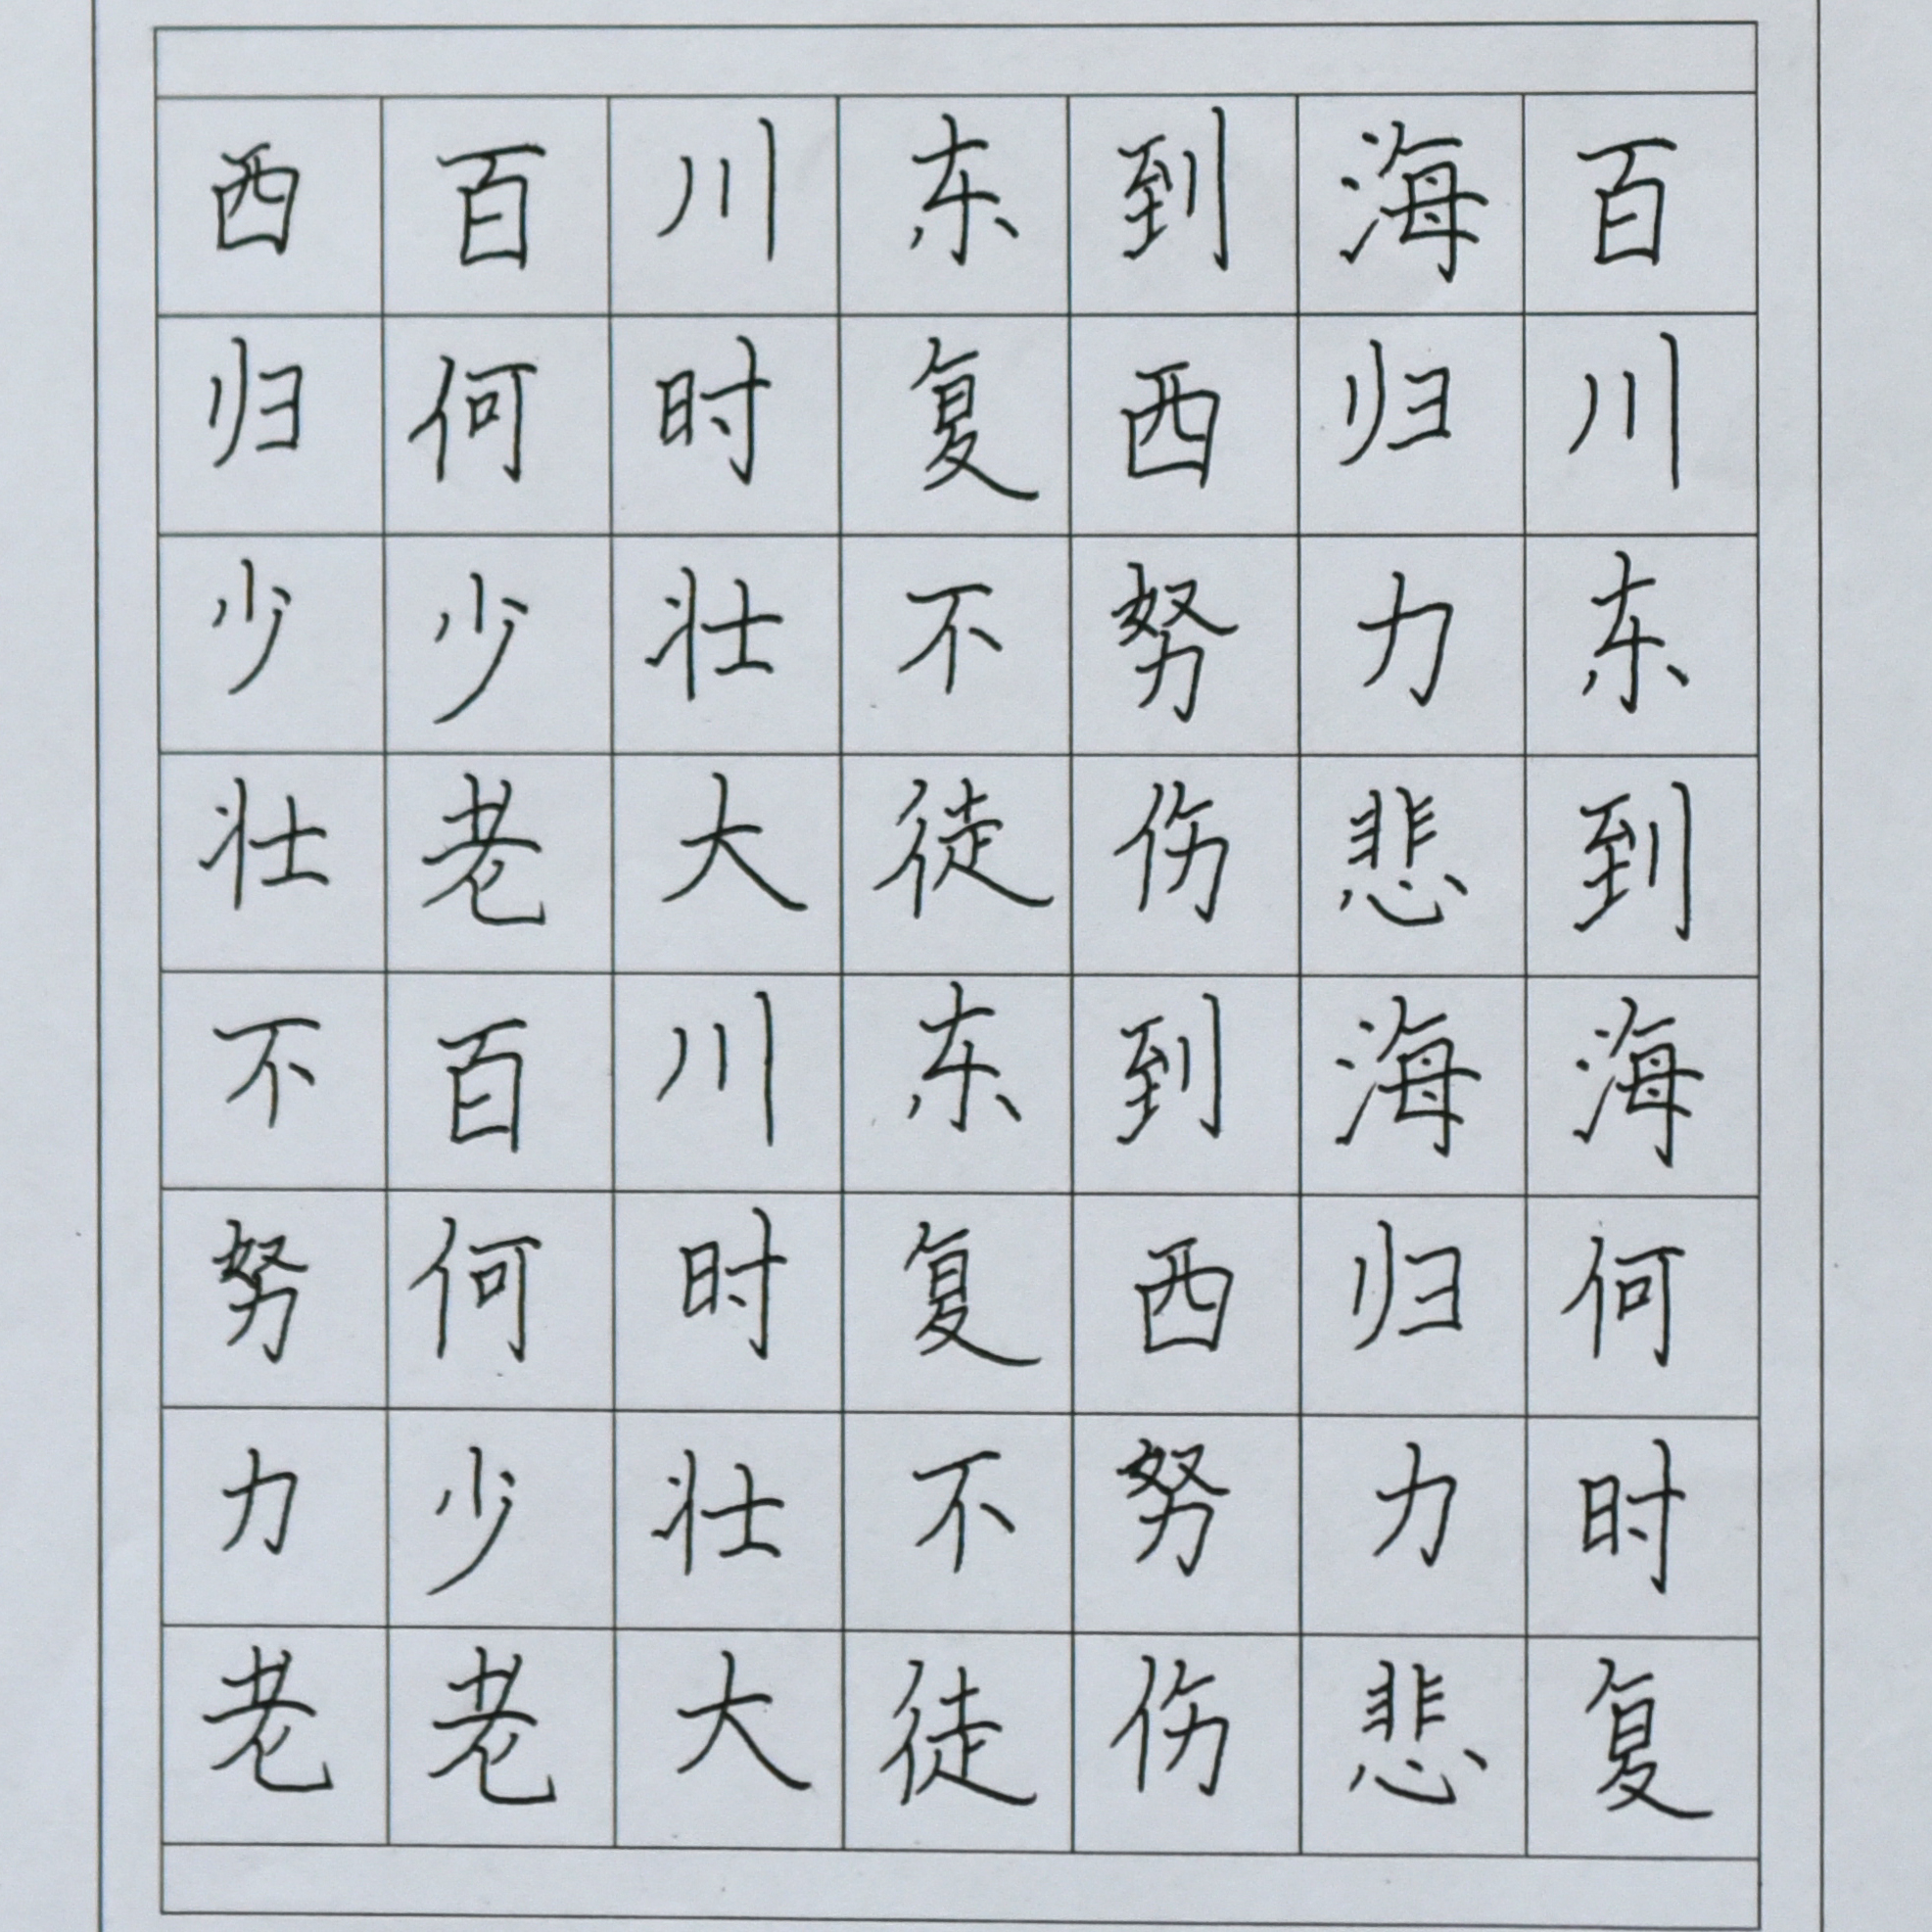 西百川东到海百
归何时复西归川
少少壮不努力东
壮老大徒伤悲到
不百川东到海海
努何时复西归何
力少壮不努力时
老老大徒伤悲复